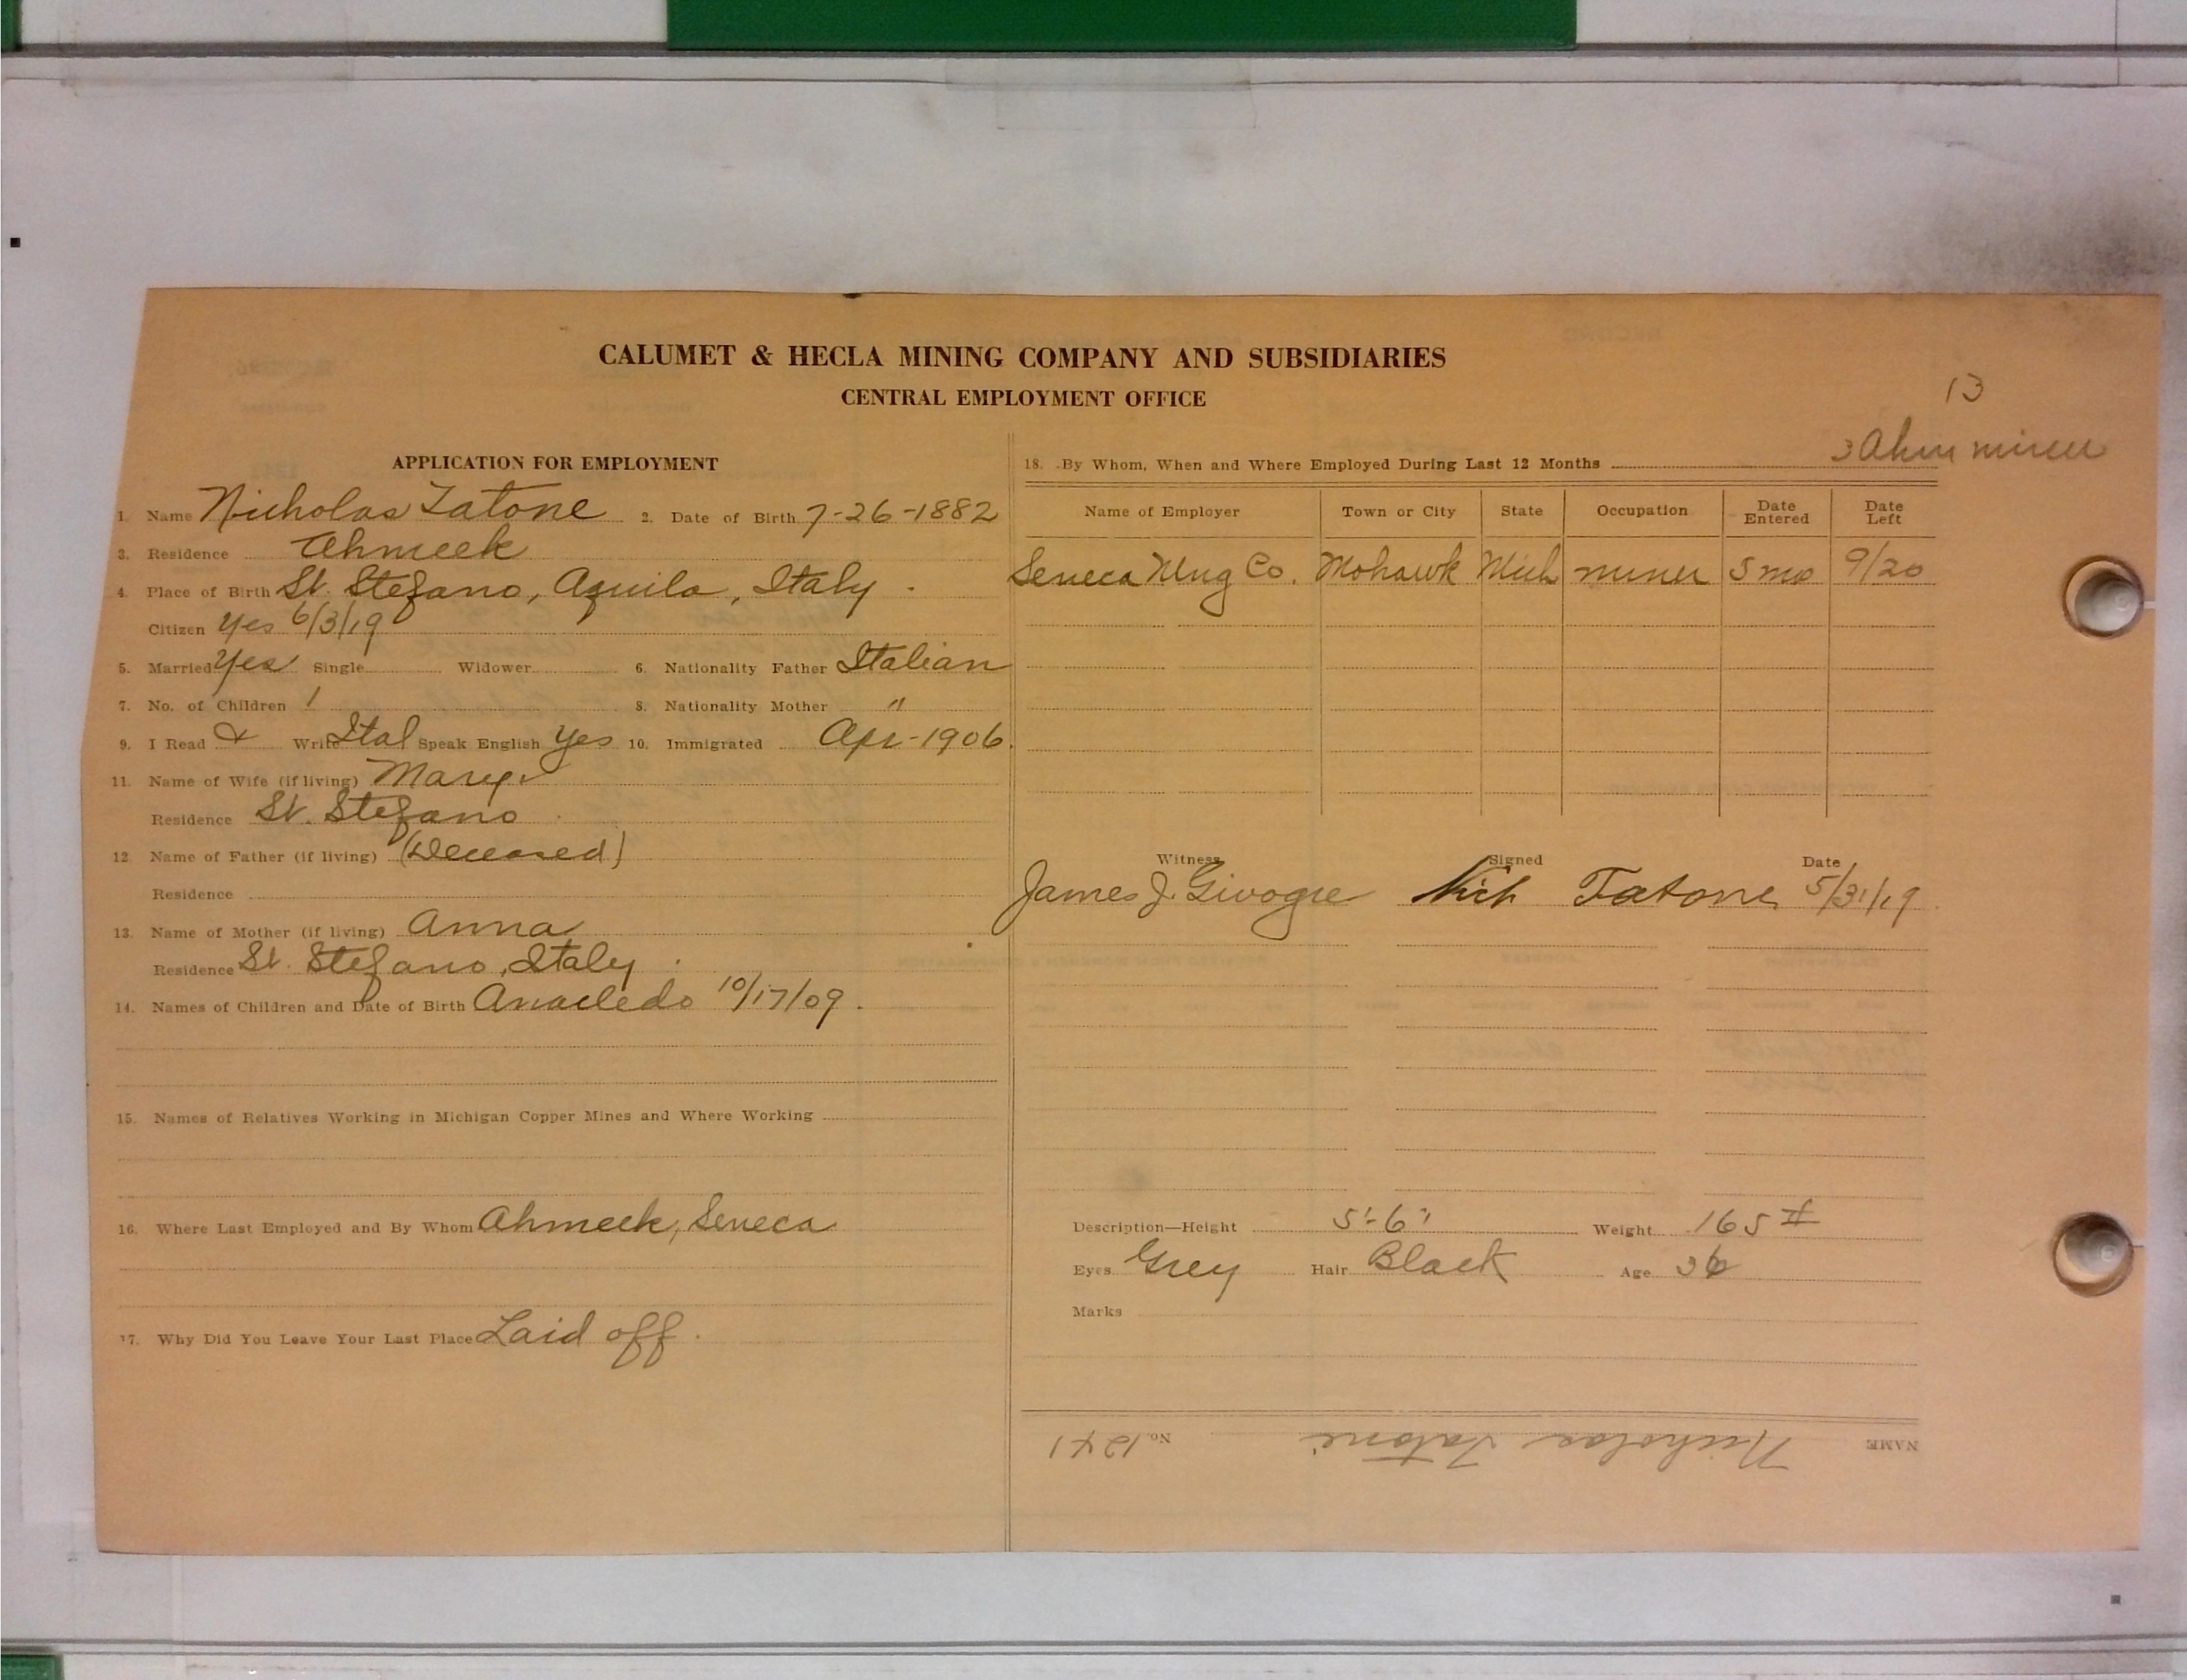 CALUMET & HECLA MINING COMPANY AND SUBSIDIARIES
CENTRAL EMPLOYMENT OFFICE
13
Ahm miner
APPLICATION FOR EMPLOYMENT
1. Name Nicholas Tatone 2. Date of Birth 7-26-1882
3. Residence Ahmeek
4. Place of Birth St. Stefano, Aquila, Italy.
Citizen Yes 6/3/19
5. Married Yes Single Widower 6. Nationality Father Italian
7. No. of Children 1 8. Nationality Mother "
9. I Read & Write Ital Speak English Yes 10. Immigrated Apr-1906.
11. Name of Wife (if living) Mary
Residence St. Stefano
12. Name of Father (if living) (Deceased)
Residence
13. Name of Mother (if living) Anna
Residence St. Stefano, Italy.
14. Names of Children and Date of Birth 10/17/09.
15. Names of Relatives Working in Michigan Copper Mines and Where Working
16. Where Last Employed and By Whom Ahmeek, Seneca
17. Why Did You Leave Your Last Place Laid off.
18. By Whom, When and Where Employed During Last 12 Months
Name of Employer Town or City State Occupation Date Entered Date Left
Seneca Mng Co. Mohawk Mich miner 5 mo 9/20
Witness Signed Date
James J. Nich Tatone 5/31/19
Description—Height 5'-6" Weight 165 #
Eyes Grey Hair Black Age 36
Marks
NAME Nicholas Tatone No. 1241